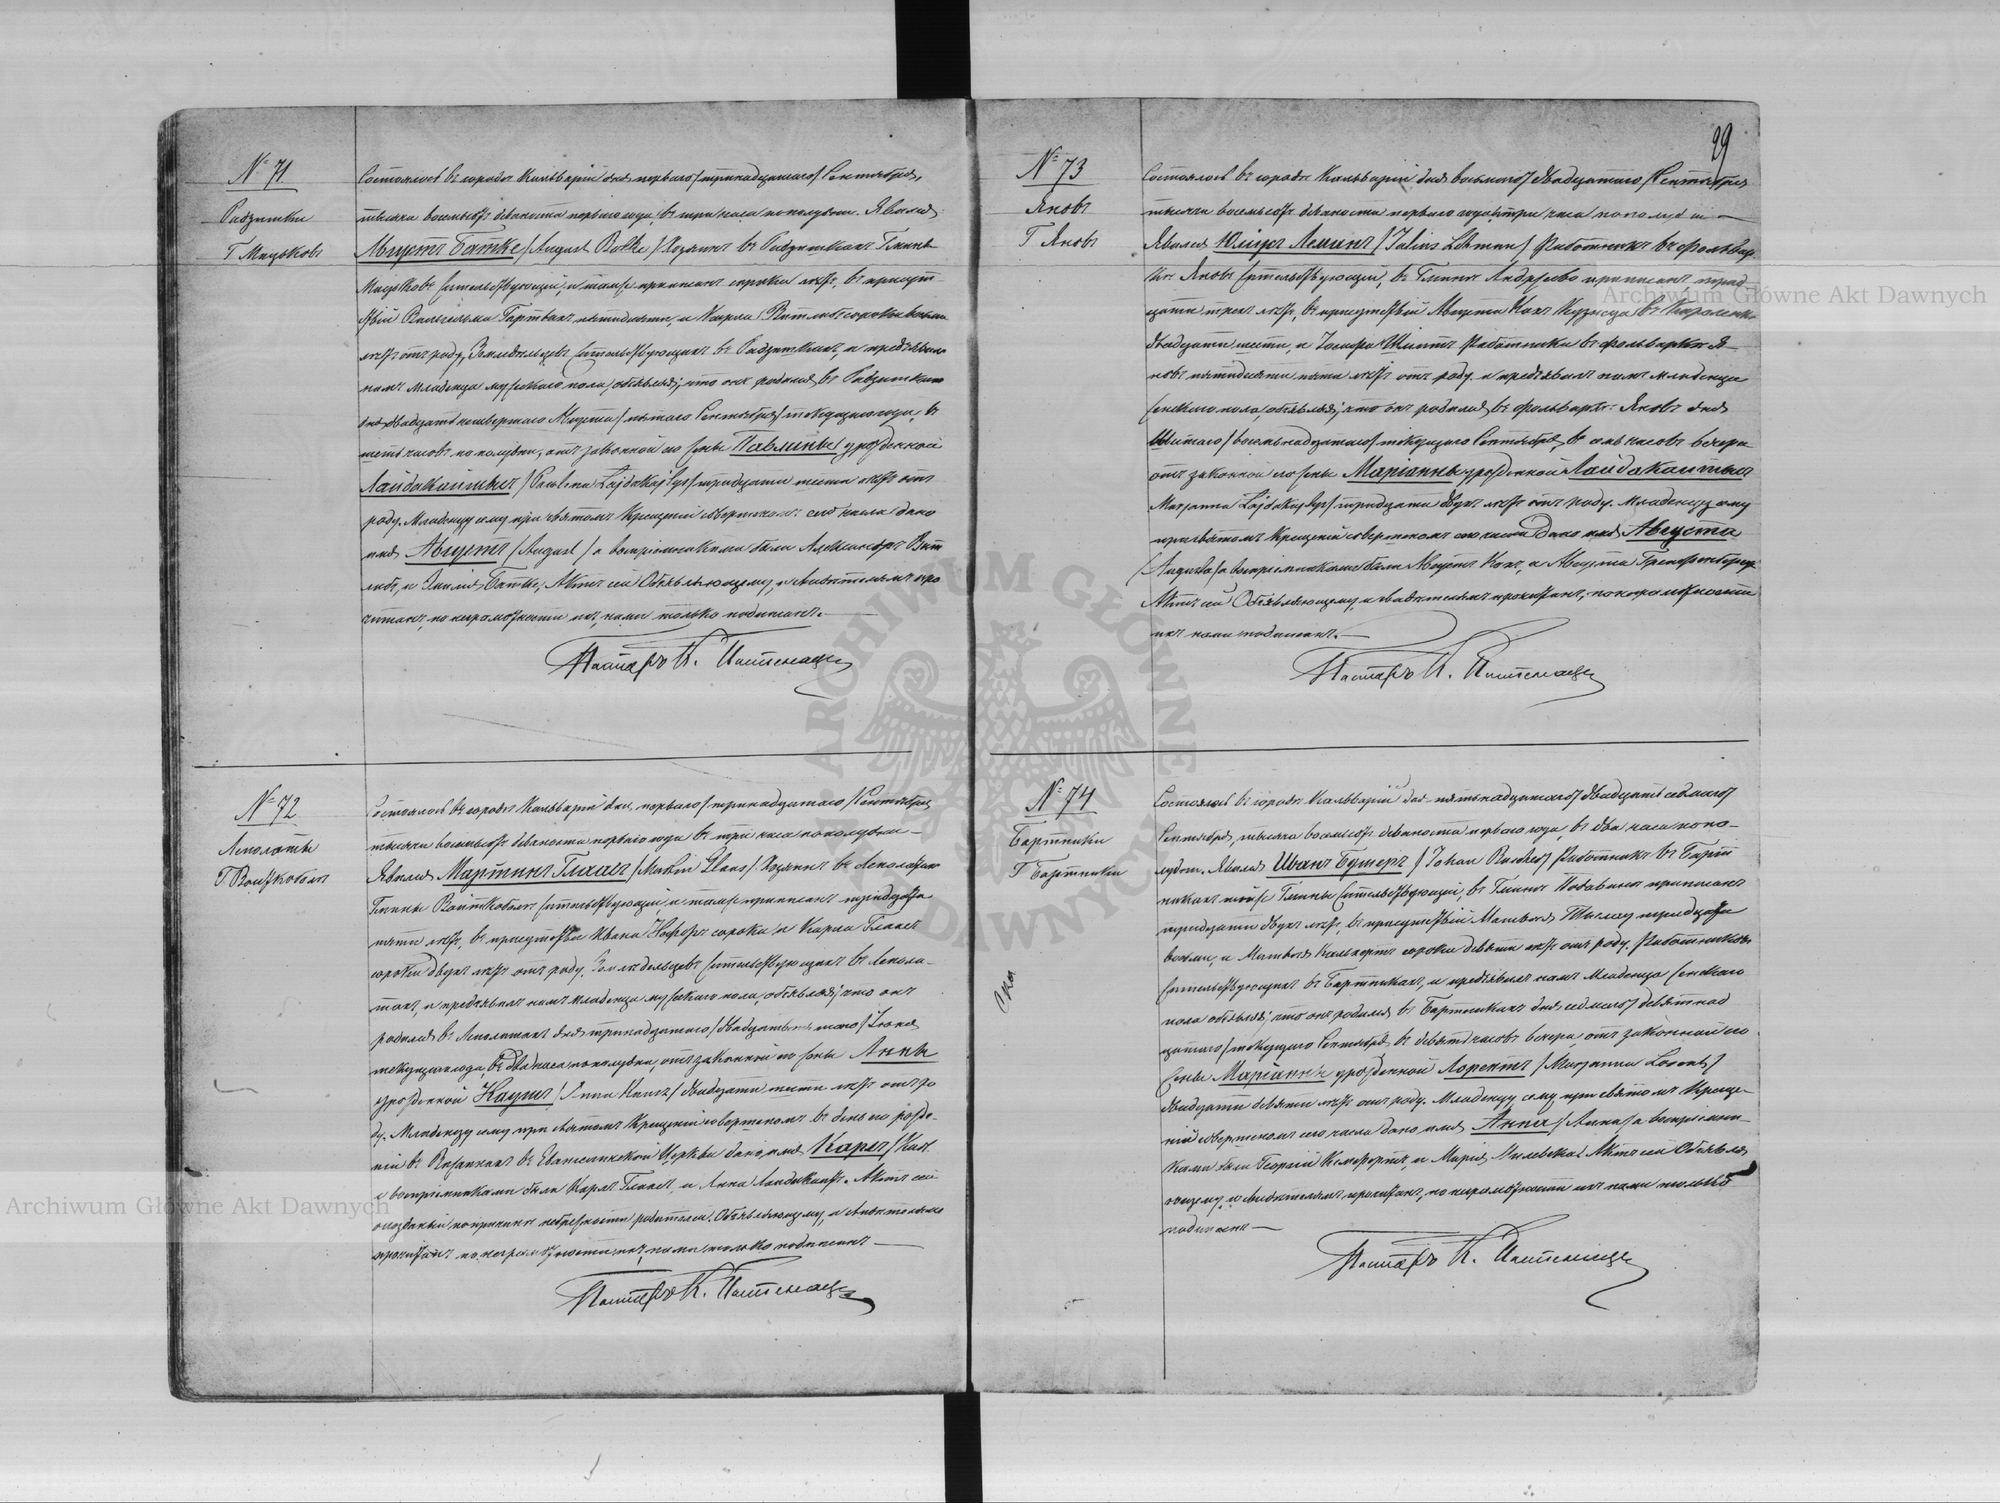 № 71
Радзишки
Г Мацьковъ
Состоялось въ городѣ Кальваріи дня перваго/тринадцатаго/Сентября,
тысяча восемьсотъ девяноста перваго года, въ три часа пополудни. Явился
Августъ Батке /August Batke/ Хозяинъ въ Радзишкахъ Гмины
Мацьковъ жительствующій, и тамже приписанъ сорока лѣтъ, въ присут-
ствіи Вильгельма Гартвихъ пятидесяти, и Карла Витлибъ сорока восьми
лѣтъ отъ роду, Земледѣльцевъ жительствующихъ въ Радзишкахъ, и предъявилъ
намъ младенца мужескаго пола, объявляя; что онъ родился въ Радзишкахъ
дня двадцать четвертаго Августа/пятаго Сентября/текущаго года, въ
шесть часовъ пополудни, отъ законной его жены Павлины урожденной
/Paulina Lajdakajtys/ тридцати шести лѣтъ отъ
роду. Младенцу сему при святомъ Крещеніи совершенномъ сего числа дано
имя Августъ /August/ а воспріемниками были Александръ Вит-
либъ, и Эмилія Батке. Актъ сей Объявляющему, и свидѣтелямъ про-
читанъ, по неграмотности ихъ, нами только подписанъ.—
Пасторъ К.
№ 72
Г. Войткобольъ
Состоялось въ городѣ Кальваріи дня перваго/тринадцатаго/Сентября
тысяча восемьсотъ девяноста перваго года въ три часа пополудни—
Явился Мартинъ Глаасъ /Martin Glaas/ Хозяинъ въ
Гмины Войткоболъ жительствующій, и тамже приписанъ тридцати
пяти лѣтъ, въ присутствіи Ивана сорока, и Карла Глаасъ
сорока двухъ лѣтъ отъ роду, Земледѣльцевъ жительствующихъ въ
и предъявилъ намъ младенца мужескаго пола, объявляя; что онъ
родился въ дня тринадцатаго/двадцать пятаго/Іюня
текущаго года, въ два часа пополудни, отъ законной его жены Анны
урожденной двадцати шести лѣтъ отъ ро-
ду. Младенцу сему при святомъ Крещеніи совершенномъ въ день его рожде-
нія въ въ Евангелической Церкви дано имя Карлъ /Karl
а воспріемниками были Карлъ Глаасъ, и Анна Актъ сей
опозданъ по причинѣ небрежности родителей. Объявляющему, и свидѣтелямъ
прочитанъ по неграмотности ихъ, нами только подписанъ—
Пасторъ К.
29
№ 73
Яновъ
Г Яновъ
Состоялось въ городѣ Кальваріи дня восьмаго/двадцатаго/Сентября
тысяча восемьсотъ девяноста перваго года, въ три часа пополудни—
Явился Юліусъ Леманъ /Julius Lehman/ Работникъ въ фольвар-
кѣ Яновъ жительствующій, въ Гминѣ Андржеево приписанъ тридцати
трехъ лѣтъ, въ присутствіи Августа Кохъ Кузнеца въ
двадцати шести, и Іосифа Работника въ фольваркѣ Я-
новъ пятидесяти пяти лѣтъ отъ роду. и предъявилъ намъ младенца
женскаго пола, объявляя; что онъ родился въ фольваркѣ Яновъ дня
шестаго/восемнадцатаго/текущаго Сентября, въ семь часовъ вечера
отъ законной его жены Маріанны урожденной
Marjanna тридцати двухъ лѣтъ отъ роду. Младенцу сему
при святомъ Крещеніи совершенномъ сего числа дано имя Августа
/Augusta/ а воспріемниками были Августъ Кохъ, и Августа
Актъ сей Объявляющему, и свидѣтелямъ прочитанъ, по неграмотности
ихъ нами подписанъ.—
Пасторъ К.
№ 74
Бартники
Г Бартники
Состоялось въ городѣ Кальваріи дня пятнадцатаго/двадцать седьмаго/
Сентября, тысяча восемьсотъ девяноста перваго года, въ два часа попо-
лудни. Явился Иванъ Бушеръ Работникъ въ Барт-
никахъ тойже Гмины жительствующій, въ Гминѣ приписанъ
тридцати двухъ лѣтъ, въ присутствіи Матвѣя тридцати
восьми, и Матвѣя сорока девяти лѣтъ отъ роду. Работниковъ
жительствующихъ въ Бартникахъ, и предъявилъ намъ младенца женскаго
пола объявляя; что онъ родился въ Бартникахъ дня седьмаго/девятнад-
цатаго/текущаго Сентября въ девять часовъ вечера, отъ законной его
жены Маріанны урожденной Лорентъ /Marjanna Lorent/
двадцати девяти лѣтъ отъ роду. Младенцу сему при святомъ Креще-
ніи совершенномъ сего числа дано имя Анна /Anna/ а воспріемни-
ками были Георгій и Марія Актъ сей Объявля-
ющему, и свидѣтелямъ прочитанъ, по неграмотности ихъ нами только
подписанъ—
Пасторъ К.
Archiwum Główne Akt Dawnych
Archiwum Główne Akt Dawnych
ARCHIWUM GŁÓWNE AKT DAWNYCH